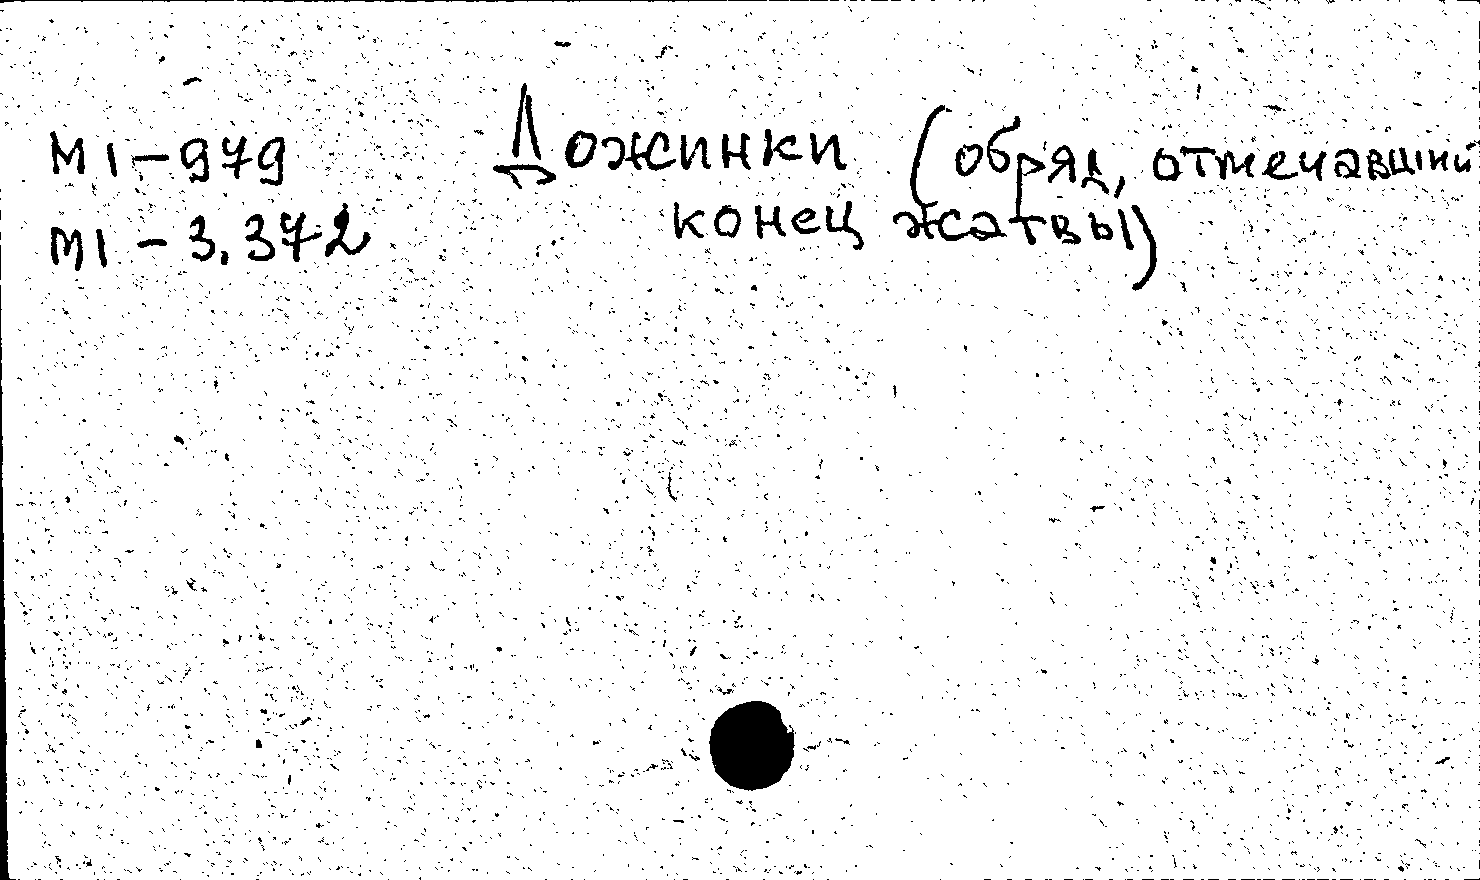 М1-979 Дожинки (обряд, отмечавший
М1-3.372 конец жатвы)